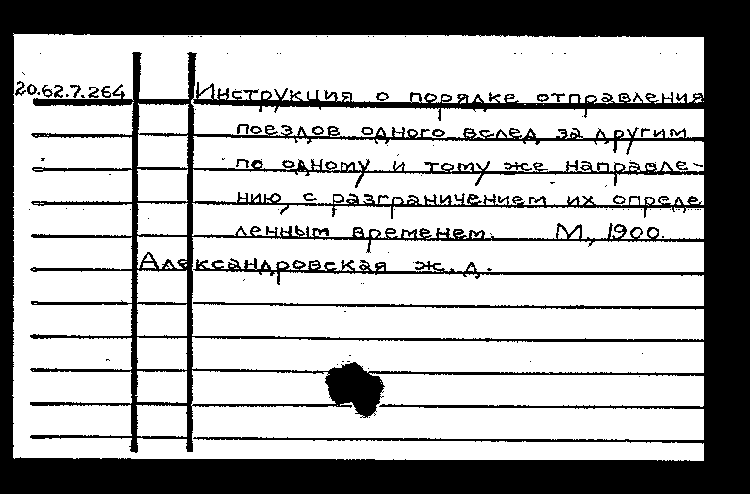 20.62.7.264 Инструкция о порядке отправления
поездов одного вслед за другим
по одному и тому же направле-
нию, с разграничением их опреде
ленным временем. М., 1900.
Александровская ж.д.